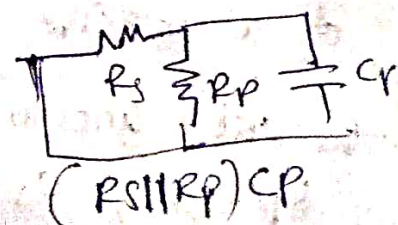 Rs Rp Cp
(Rs||Rp) Cp.